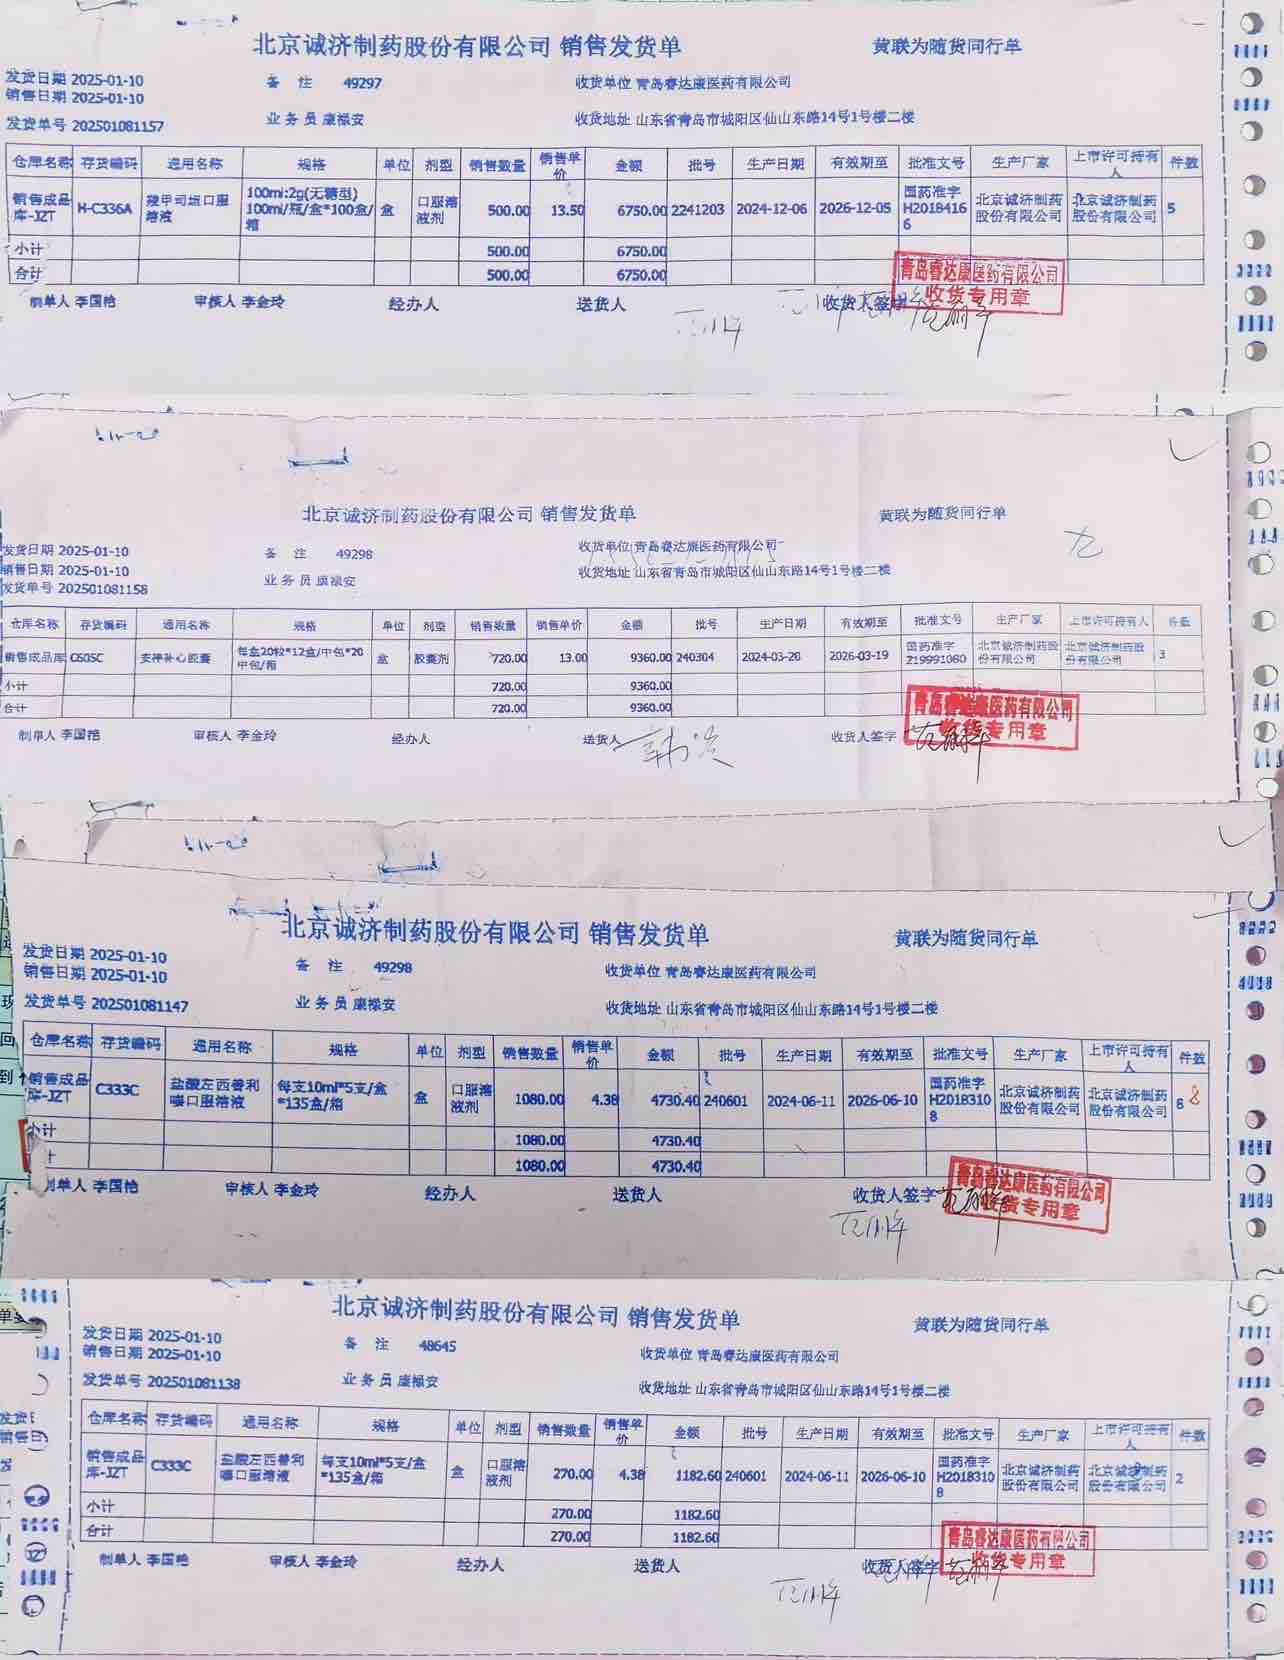 北京诚济制药股份有限公司 销售发货单 黄联为随货同行单
发货日期 2025-01-10 备 注 49297 收货单位 青岛睿达康医药有限公司
销售日期 2025-01-10
发货单号 202501081157 业务员 康禄安 收货地址 山东省青岛市城阳区仙山东路14号1号楼二楼
仓库名称 存货编码 通用名称 规格 单位 剂型 销售数量 销售单价 金额 批号 生产日期 有效期至 批准文号 生产厂家 上市许可持有人 件数
销售成品库-JZT H-C336A 羧甲司坦口服溶液 100ml:2g(无糖型) 100ml/瓶/盒*100盒/箱 盒 口服溶液剂 500.00 13.50 6750.00 2241203 2024-12-06 2026-12-05 国药准字H20184166 北京诚济制药股份有限公司 北京诚济制药股份有限公司 5
小计 500.00 6750.00
合计 500.00 6750.00
制单人 李国艳 审核人 李金玲 经办人 送货人 收货人签字
青岛睿达康医药有限公司
收货专用章
北京诚济制药股份有限公司 销售发货单 黄联为随货同行单
发货日期 2025-01-10 备 注 49298 收货单位 青岛睿达康医药有限公司
销售日期 2025-01-10 业务员 康禄安 收货地址 山东省青岛市城阳区仙山东路14号1号楼二楼
发货单号 202501081158
仓库名称 存货编码 通用名称 规格 单位 剂型 销售数量 销售单价 金额 批号 生产日期 有效期至 批准文号 生产厂家 上市许可持有人 件数
销售成品库 C605C 安神补心胶囊 每盒20粒*12盒/中包*20中包/箱 盒 胶囊剂 720.00 13.00 9360.00 240304 2024-03-20 2026-03-19 国药准字Z19991080 北京诚济制药股份有限公司 北京诚济制药股份有限公司 3
小计 720.00 9360.00
合计 720.00 9360.00
制单人 李国艳 审核人 李金玲 经办人 送货人 收货人签字
青岛睿达康医药有限公司
收货专用章
北京诚济制药股份有限公司 销售发货单 黄联为随货同行单
发货日期 2025-01-10 备 注 49298 收货单位 青岛睿达康医药有限公司
销售日期 2025-01-10
发货单号 202501081147 业务员 康禄安 收货地址 山东省青岛市城阳区仙山东路14号1号楼二楼
仓库名称 存货编码 通用名称 规格 单位 剂型 销售数量 销售单价 金额 批号 生产日期 有效期至 批准文号 生产厂家 上市许可持有人 件数
销售成品库-JZT C333C 盐酸左西替利嗪口服溶液 每支10ml*5支/盒*135盒/箱 盒 口服溶液剂 1080.00 4.38 4730.40 240601 2024-06-11 2026-06-10 国药准字H20183108 北京诚济制药股份有限公司 北京诚济制药股份有限公司 6 8
小计 1080.00 4730.40
计 1080.00 4730.40
制单人 李国艳 审核人 李金玲 经办人 送货人 收货人签字
青岛睿达康医药有限公司
收货专用章
北京诚济制药股份有限公司 销售发货单 黄联为随货同行单
发货日期 2025-01-10 备 注 48645 收货单位 青岛睿达康医药有限公司
销售日期 2025-01-10
发货单号 202501081138 业务员 康禄安 收货地址 山东省青岛市城阳区仙山东路14号1号楼二楼
仓库名称 存货编码 通用名称 规格 单位 剂型 销售数量 销售单价 金额 批号 生产日期 有效期至 批准文号 生产厂家 上市许可持有人 件数
销售成品库-JZT C333C 盐酸左西替利嗪口服溶液 每支10ml*5支/盒*135盒/箱 盒 口服溶液剂 270.00 4.38 1182.60 240601 2024-06-11 2026-06-10 国药准字H20183108 北京诚济制药股份有限公司 北京诚济制药股份有限公司 2
小计 270.00 1182.60
合计 270.00 1182.60
制单人 李国艳 审核人 李金玲 经办人 送货人 收货人签字
青岛睿达康医药有限公司
收货专用章